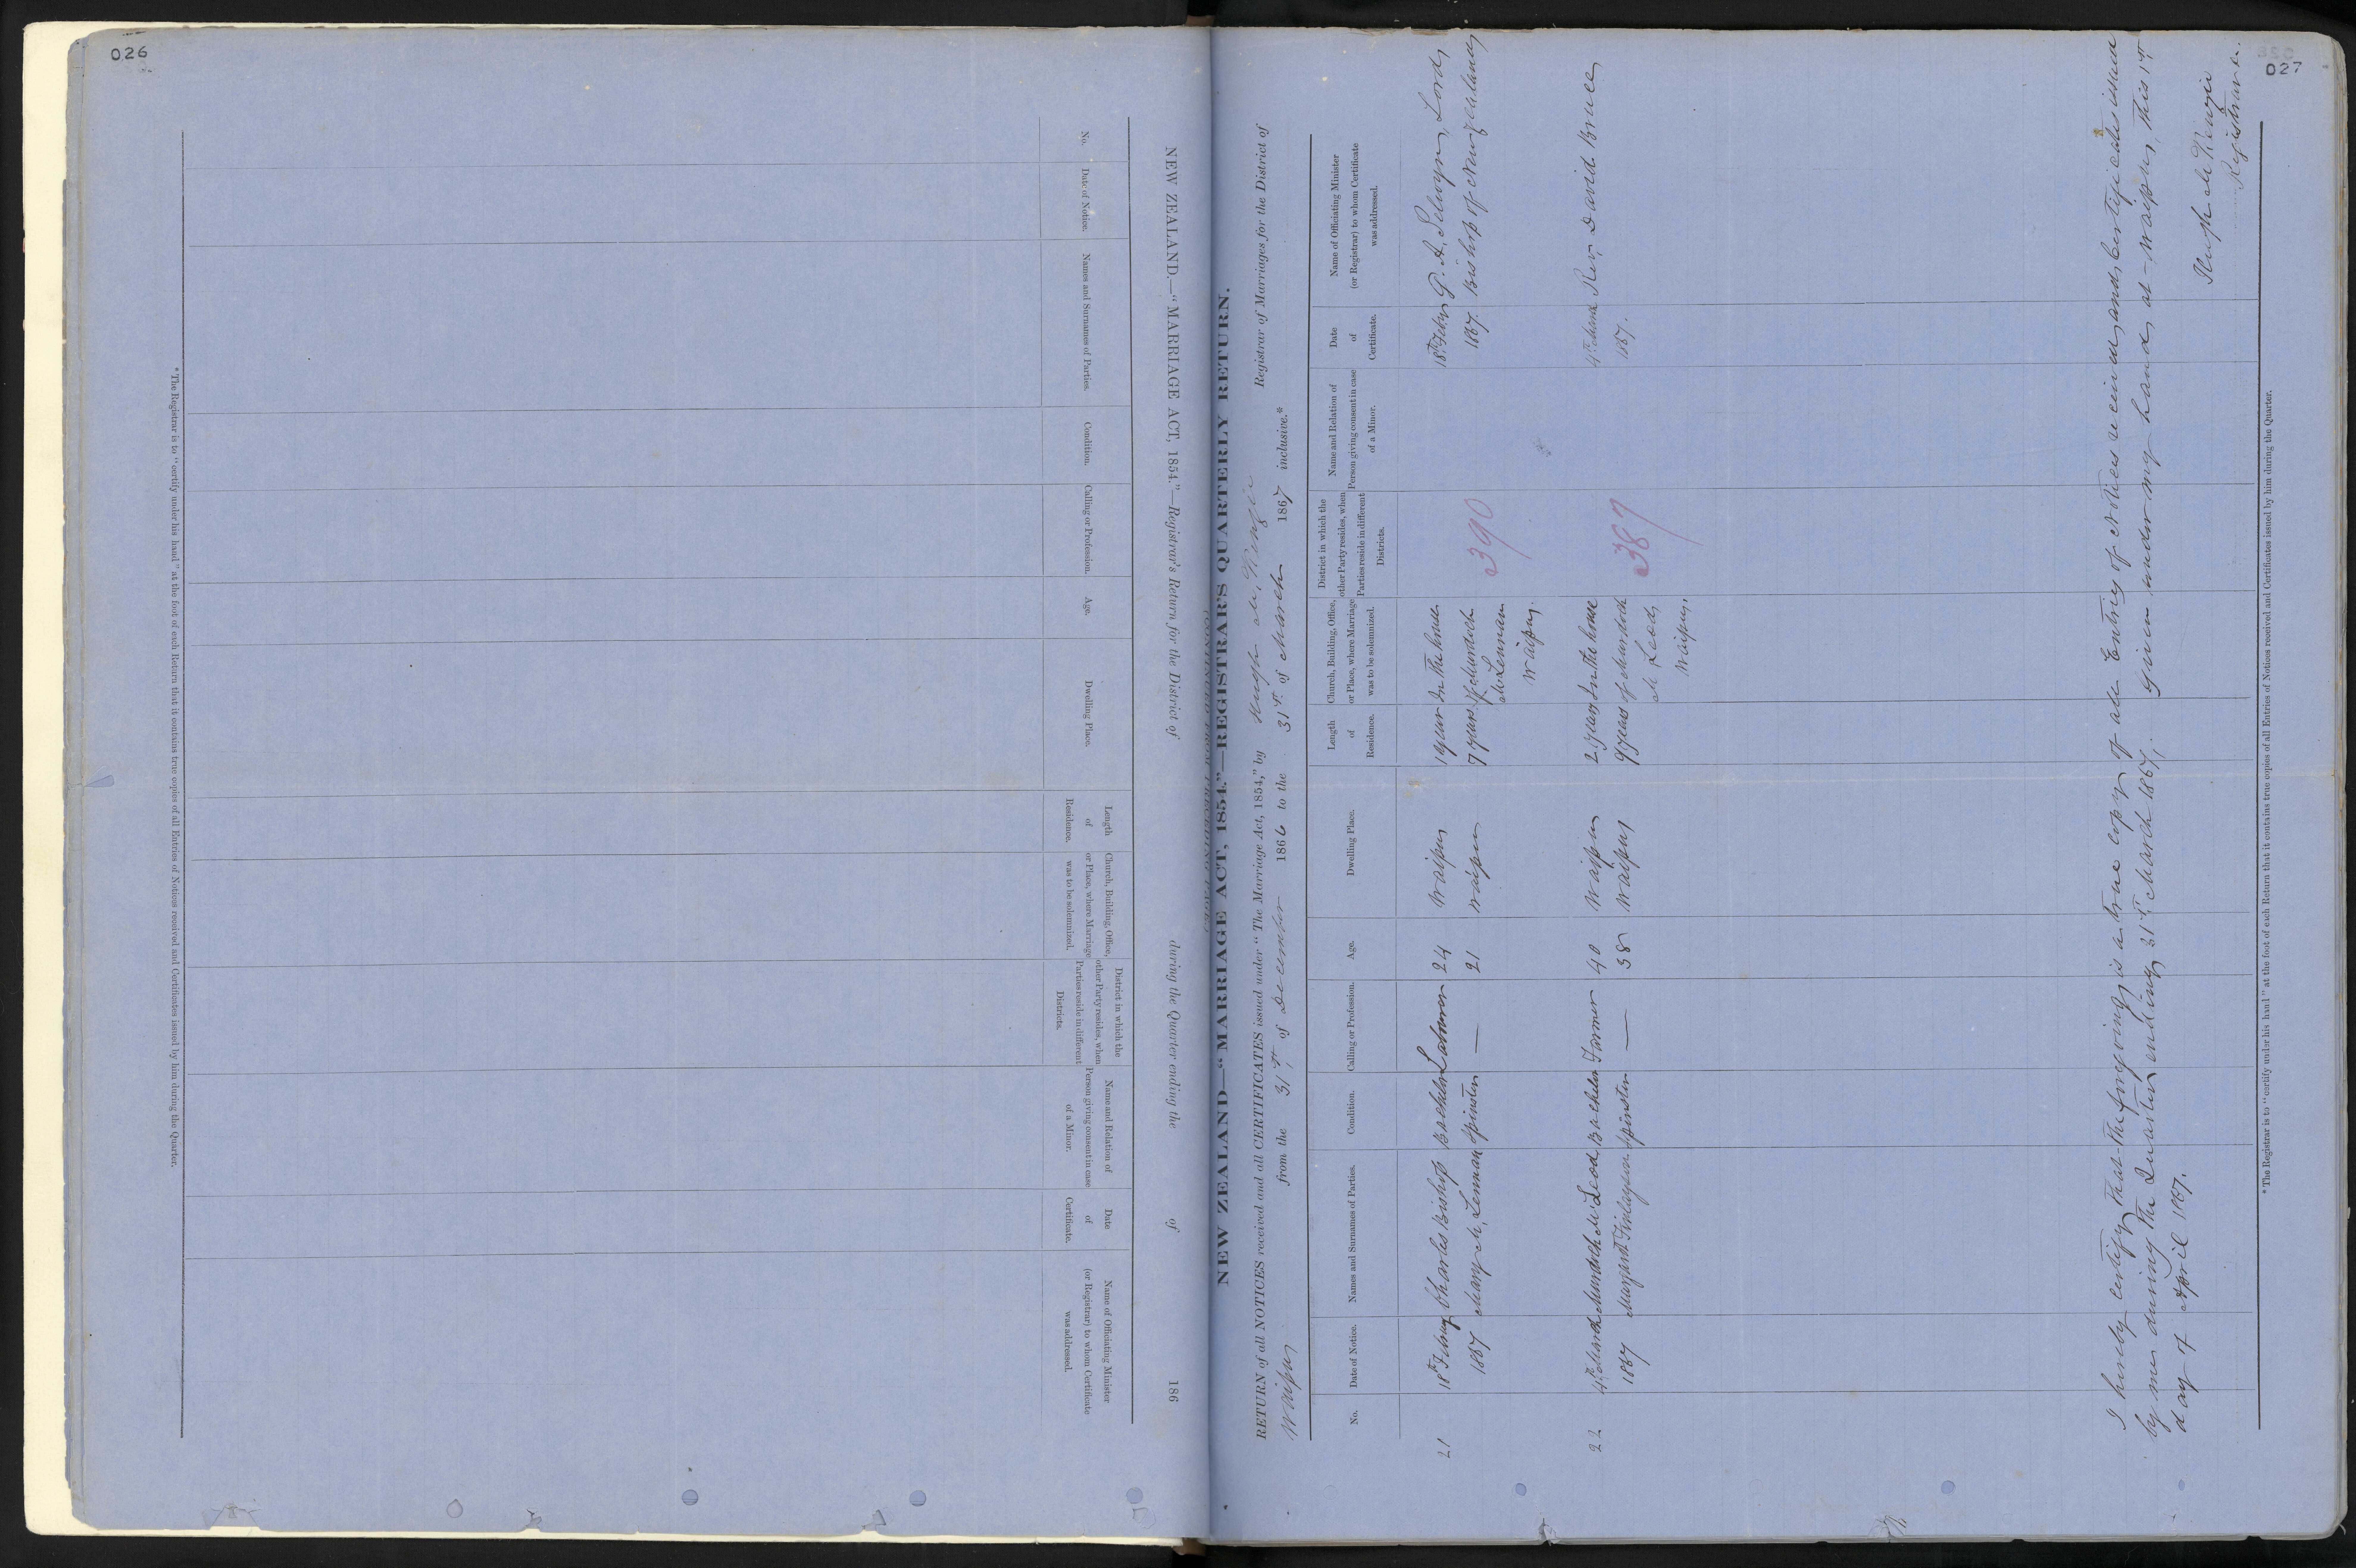 026
NEW ZEALAND.—"MARRIAGE ACT, 1854."—Registrar's Return for the District of during the Quarter ending the of 186
No.
Date of Notice.
Names and Surnames of Parties.
Condition.
Calling or Profession.
Age.
Dwelling Place.
Length
of
Residence.
Church, Building, Office,
or Place, where Marriage
was to be solemnized.
District in which the
other Party resides, when
Parties reside in different
Districts.
Name and Relation of
Person giving consent in case
of a Minor.
Date
of
Certificate.
Name of Officiating Minister
(or Registrar) to whom Certificate
was addressed.
* The Registrar is to "certify under his hand" at the foot of each Return that it contains true copies of all Entries of Notices received and Certificates issued by him during the Quarter.
027
NEW ZEALAND—"MARRIAGE ACT, 1854."—REGISTRAR'S QUARTERLY RETURN.
RETURN of all NOTICES received and all CERTIFICATES issued under "The Marriage Act, 1854," by Hugh McKenzie Registrar of Marriages for the District of
Waipu from the 31st of December 1866 to the 31st of March 1867 inclusive.*
No.
Date of Notice.
Names and Surnames of Parties.
Condition.
Calling or Profession.
Age.
Dwelling Place.
Length
of
Residence.
Church, Building, Office,
or Place, where Marriage
was to be solemnized.
District in which the
other Party resides, when
Parties reside in different
Districts.
Name and Relation of
Person giving consent in case
of a Minor.
Date
of
Certificate.
Name of Officiating Minister
(or Registrar) to whom Certificate
was addressed.
21 18th Feby Charles Bishop Bachelor Labourer 24 Waipu 1 year In the house 18th Feby G. A. Selwyn, Lord
1867 Mary McLennan Spinster — 21 Waipu 7 years of Murdoch 390 1867. Bishop of New Zealand
McLennan
Waipu.
22 4th March Murdoch McLeod Bachelor Farmer 40 Waipu 2 years In the house 4th March Rev. David Bruce
1867 Margaret Finlayson Spinster — 38 Waipu 9 years of Murdoch 387 1867.
McLeod,
Waipu.
I hereby certify that the foregoing is a true copy of all Entries of Notices received and Certificates issued
by me during the Quarter ending 31st March 1867, given under my hand at Waipu, this 1st
day of April 1867.
Hugh McKenzie
Registrar.
* The Registrar is to "certify under his hand" at the foot of each Return that it contains true copies of all Entries of Notices received and Certificates issued by him during the Quarter.